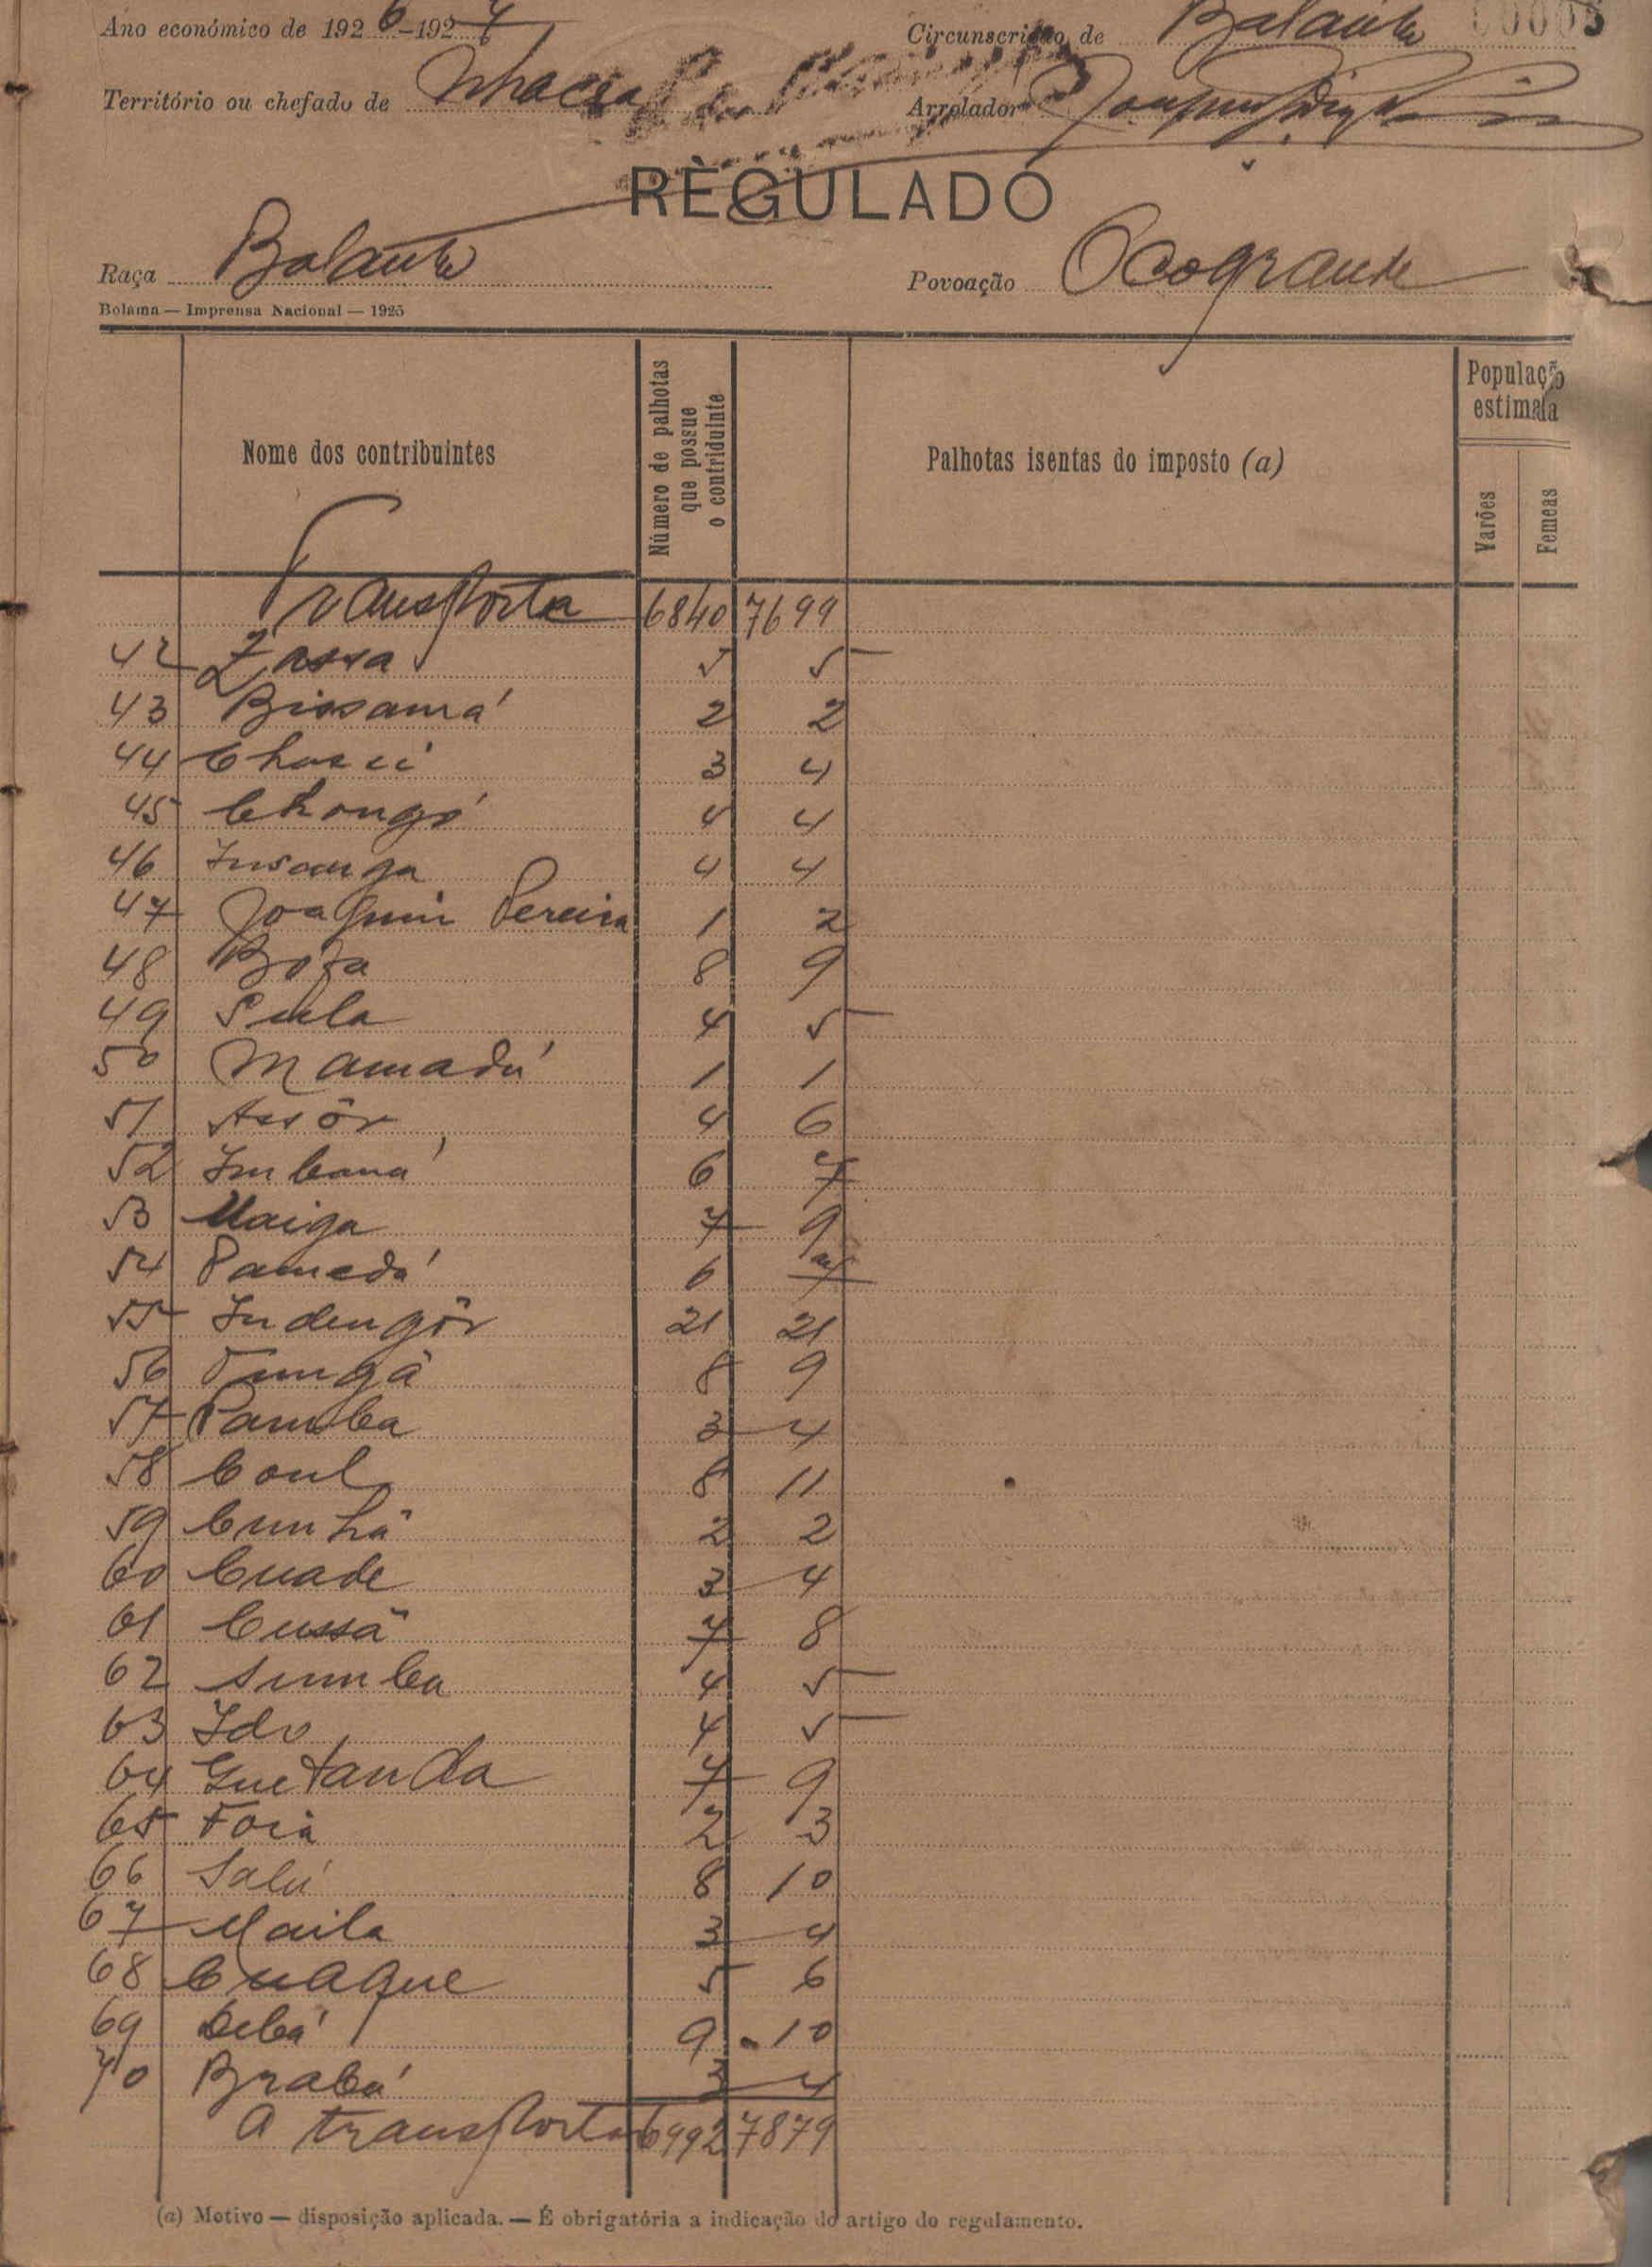 Ano económico de 1926-1927 Circunscrição de Balanta 00005
Território ou chefado de Nhacra Arrolador
REGULADO
Raça Balanta Povoação Ocogrande
Bolama — Imprensa Nacional — 1925
Nome dos contribuintes Número de palhotas que possue o contriduinte Palhotas isentas do imposto (a) População estimada Varões Femeas
Transporta 6840 7699
42 Zassa 5 5
43 Bissamá 2 2
44 3 4
45 Chongó 4 4
46 Insanga 4 4
47 Joaquim Pereira 1 2
48 8 9
49 Sula 4 5
50 Mamadú 1 1
51 Assôr 4 6
52 Imbaná 6 7
53 Maiga 7 9
54 6 7
55 Indengôr 21 21
56 8 9
57 Pamba 3 4
58 8 11
59 Cunhã 2 2
60 Cuade 3 4
61 Cussã 7 8
62 Sumba 4 5
63 Ido 4 5
64 Guetanda 7 9
65 Foiá 2 3
66 Salú 8 10
67 Maila 3 4
68 Cuaque 5 6
69 Debá 9 10
70 Brabá 3 4
A transportar 6992 7879
(a) Motivo — disposição aplicada. — É obrigatória a indicação do artigo do regulamento.